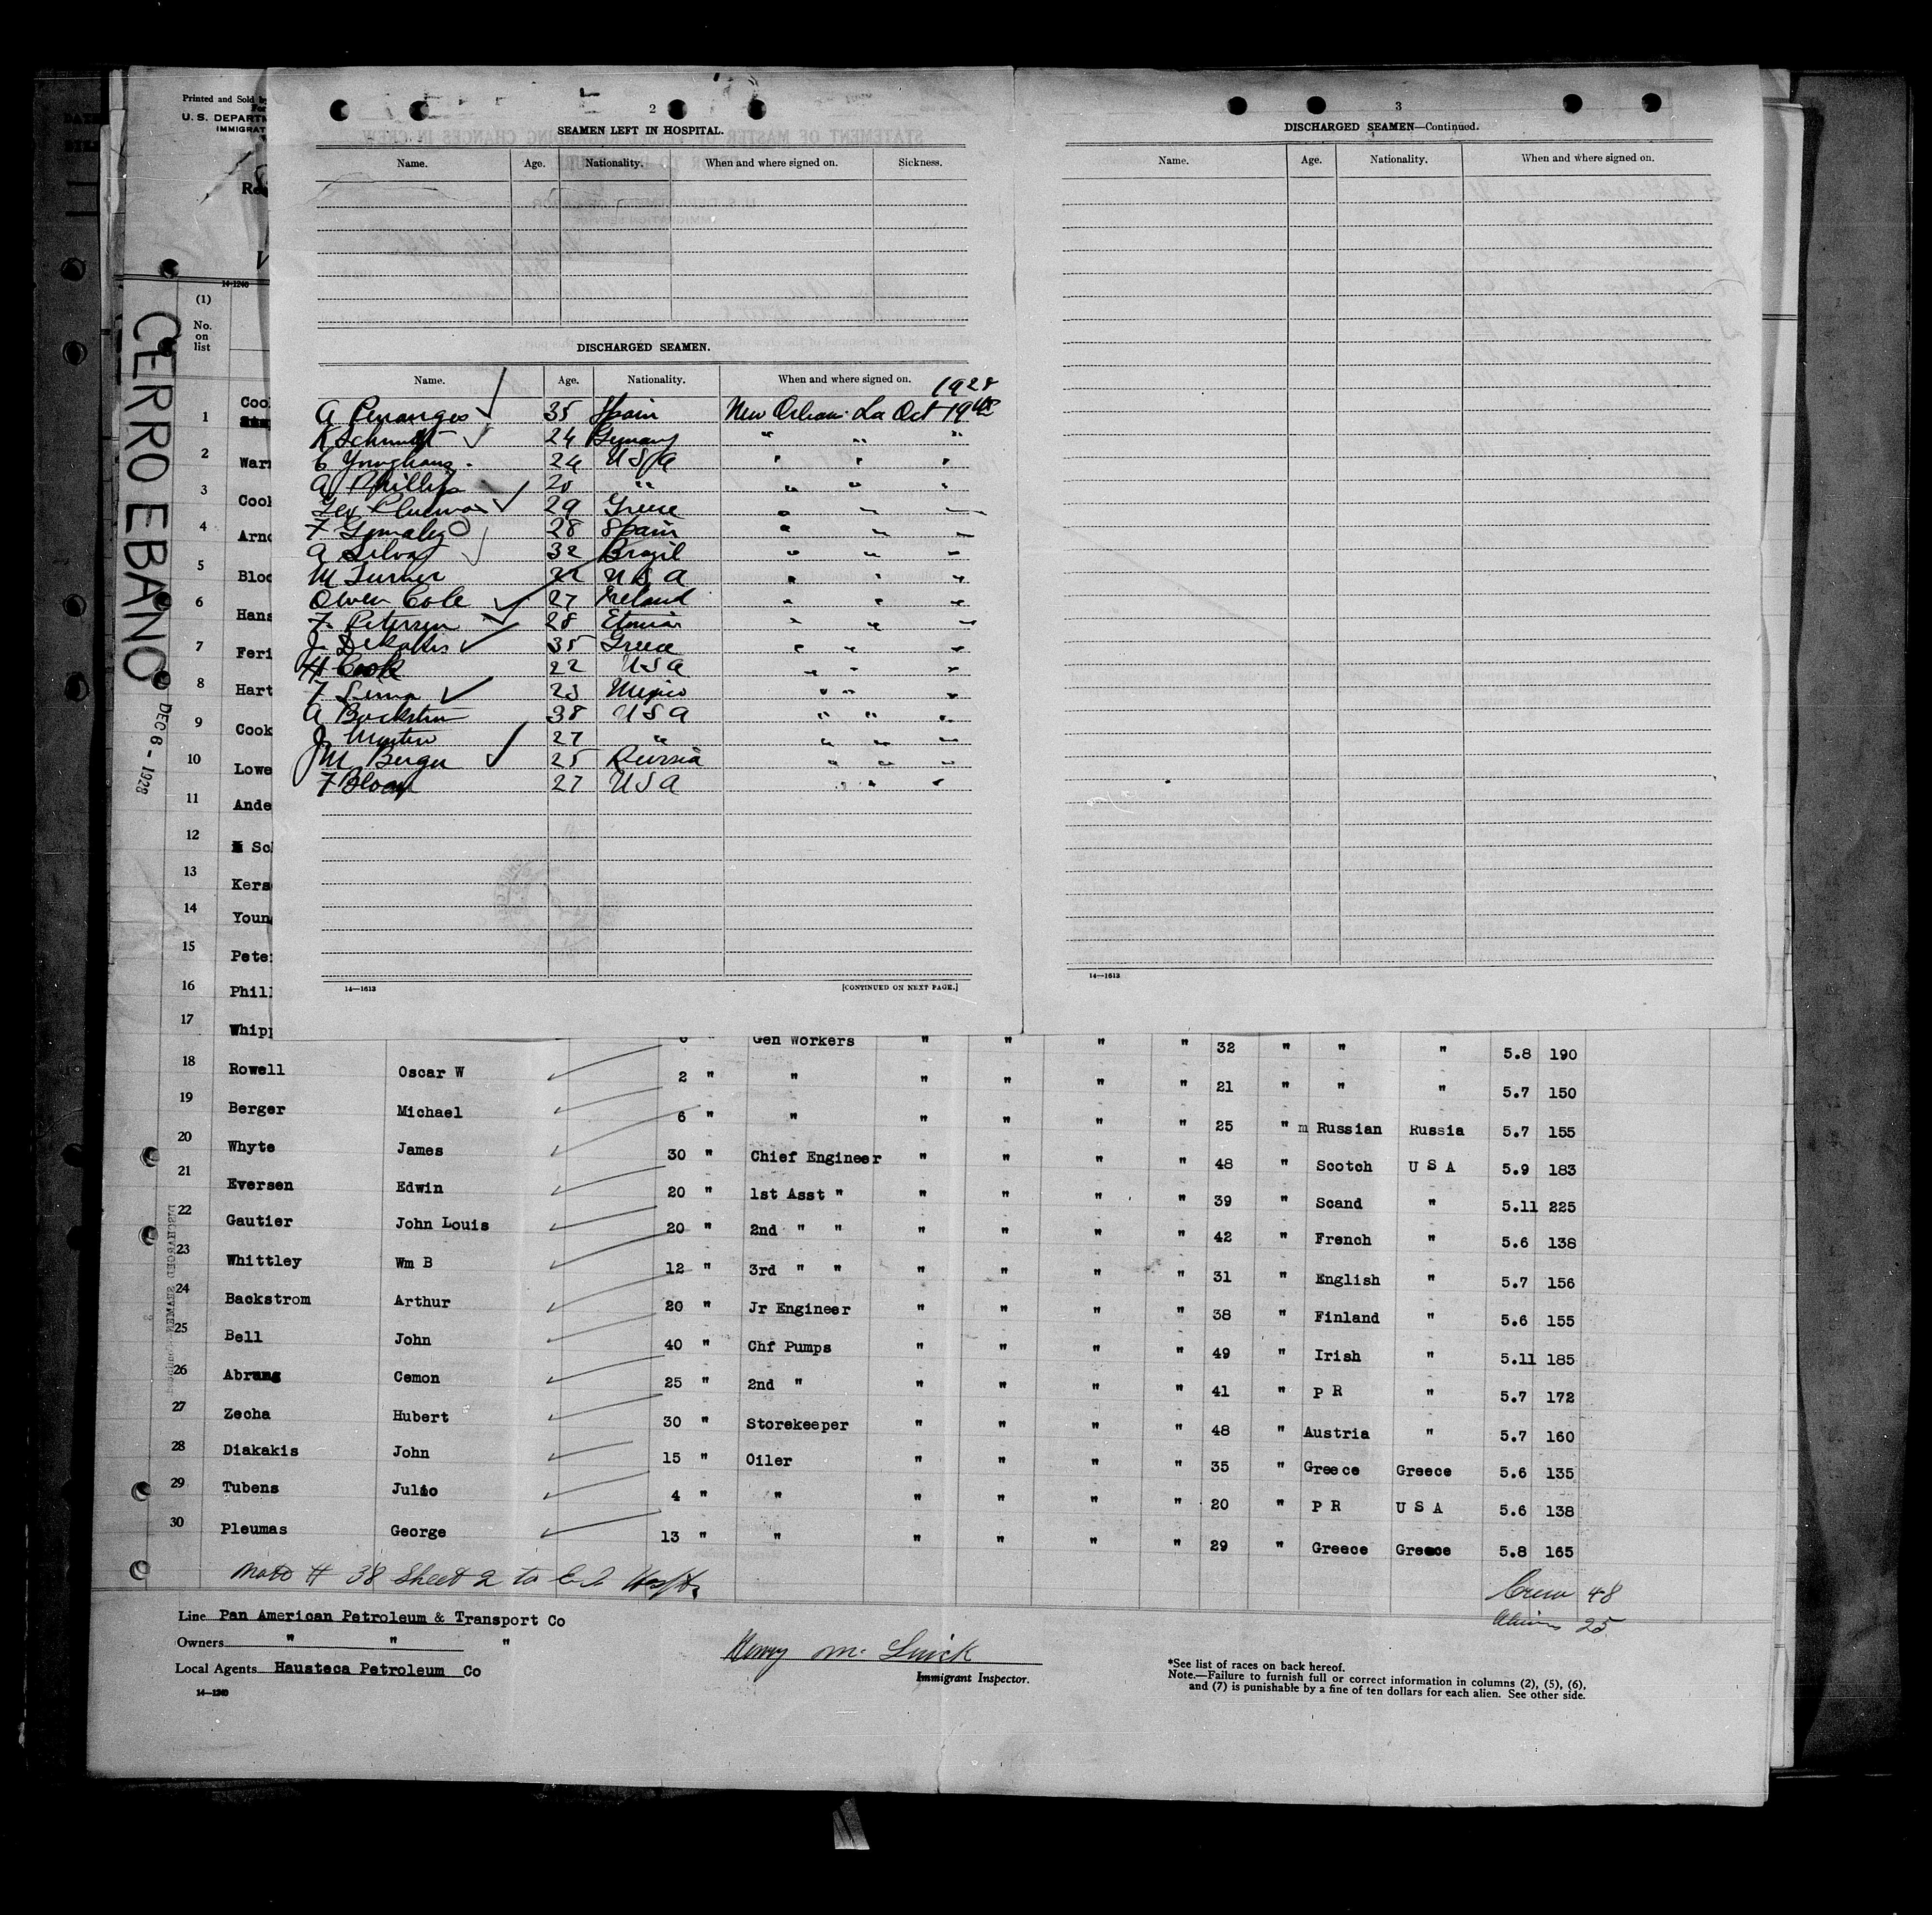 Printed and Sold by
U. S. DEPARTM
IMMIGRAT
14-1240
(1)
No.
on
list
CERRO EBANO
DEC 6 - 1928
2
SEAMEN LEFT IN HOSPITAL.
Name. Age. Nationality. When and where signed on. Sickness.
DISCHARGED SEAMEN.
Name. Age. Nationality. When and where signed on.
1928
A 35 Spain New Orleans La Oct 19th
K Schmidt 24 Germany " " "
C Younghans 24 U S A " " "
A Phillips 20 " " " "
Geo Plumas 29 Greece " " "
F Gonzalez 28 Spain " " "
A Silva 32 Brazil " " "
M Turner 22 U S A " " "
Owen Cole 27 Ireland " " "
F. Petersen 28 Etonia " " "
J. 35 Greece " " "
H Cook 22 U S A " " "
F Lima 23 Mexico " " "
A Backstrom 38 U S A " " "
J. Martin 27 " " " "
M Berger 25 Russia " " "
F Bloom 27 U S A " " "
14—1613 [CONTINUED ON NEXT PAGE.]
3
DISCHARGED SEAMEN—Continued.
Name. Age. Nationality. When and where signed on.
14—1613
1 Coo
2 Warr
3 Cook
4 Arno
5 Bloo
6 Hans
7 Feri
8 Hart
9 Cook
10 Lowe
11 Ande
12 Sch
13 Kers
14 Youn
15 Peter
16 Phill
17 Whipp Gen Workers " " " " 32 " " " 5.8 190
18 Rowell Oscar W 2 " " " " " " 21 " " " 5.7 150
19 Berger Michael 6 " " " " " " 25 " m Russian Russia 5.7 155
20 Whyte James 30 " Chief Engineer " " " " 48 " Scotch U S A 5.9 183
21 Eversen Edwin 20 " 1st Asst " " " " " 39 " Scand " 5.11 225
22 Gautier John Louis 20 " 2nd " " " " " " 42 " French " 5.6 138
23 Whittley Wm B 12 " 3rd " " " " " " 31 " English " 5.7 156
24 Backstrom Arthur 20 " Jr Engineer " " " " 38 " Finland " 5.6 155
25 Bell John 40 " Chf Pumps " " " " 49 " Irish " 5.11 185
26 Abrung Cemon 25 " 2nd " " " " " 41 " P R " 5.7 172
27 Zecha Hubert 30 " Storekeeper " " " " 48 " Austria " 5.7 160
28 Diakakis John 15 " Oiler " " " " 35 " Greece Greece 5.6 135
29 Tubens Julio 4 " " " " " " 20 " P R U S A 5.6 138
30 Pleumas George 13 " " " " " " 29 " Greece Greece 5.8 165
# 38 Sheet 2 to
Crew 48
Aliens 25
Line Pan American Petroleum & Transport Co
Owners " " "
Local Agents Hausteca Petroleum Co
14—1240
Henry Mc
Immigrant Inspector.
*See list of races on back hereof.
Note.—Failure to furnish full or correct information in columns (2), (5), (6),
and (7) is punishable by a fine of ten dollars for each alien. See other side.